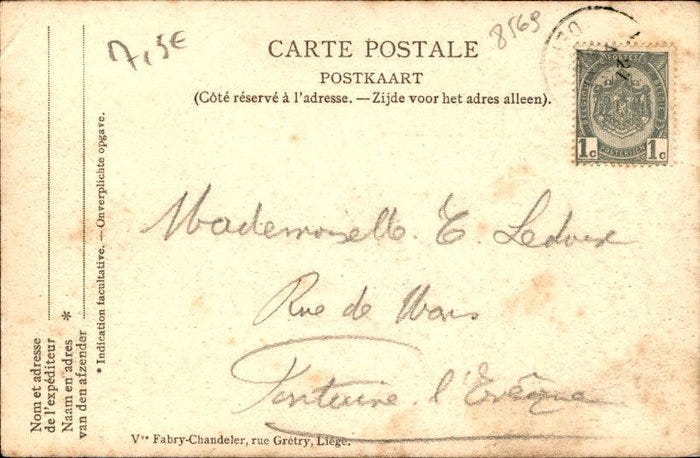 7,5€
8569
CARTE POSTALE
POSTKAART
(Côté réservé à l'adresse. — Zijde voor het adres alleen).
1c POSTERIJEN 1c
Mademoiselle E. Ledoux
Rue de Mons
Fontaine l'Evêque
Nom et adresse
de l'expéditeur
*
Naam en adres
van den afzender
* Indication facultative. — Onverplichte opgave.
Vve Fabry-Chandeler, rue Grétry, Liége.